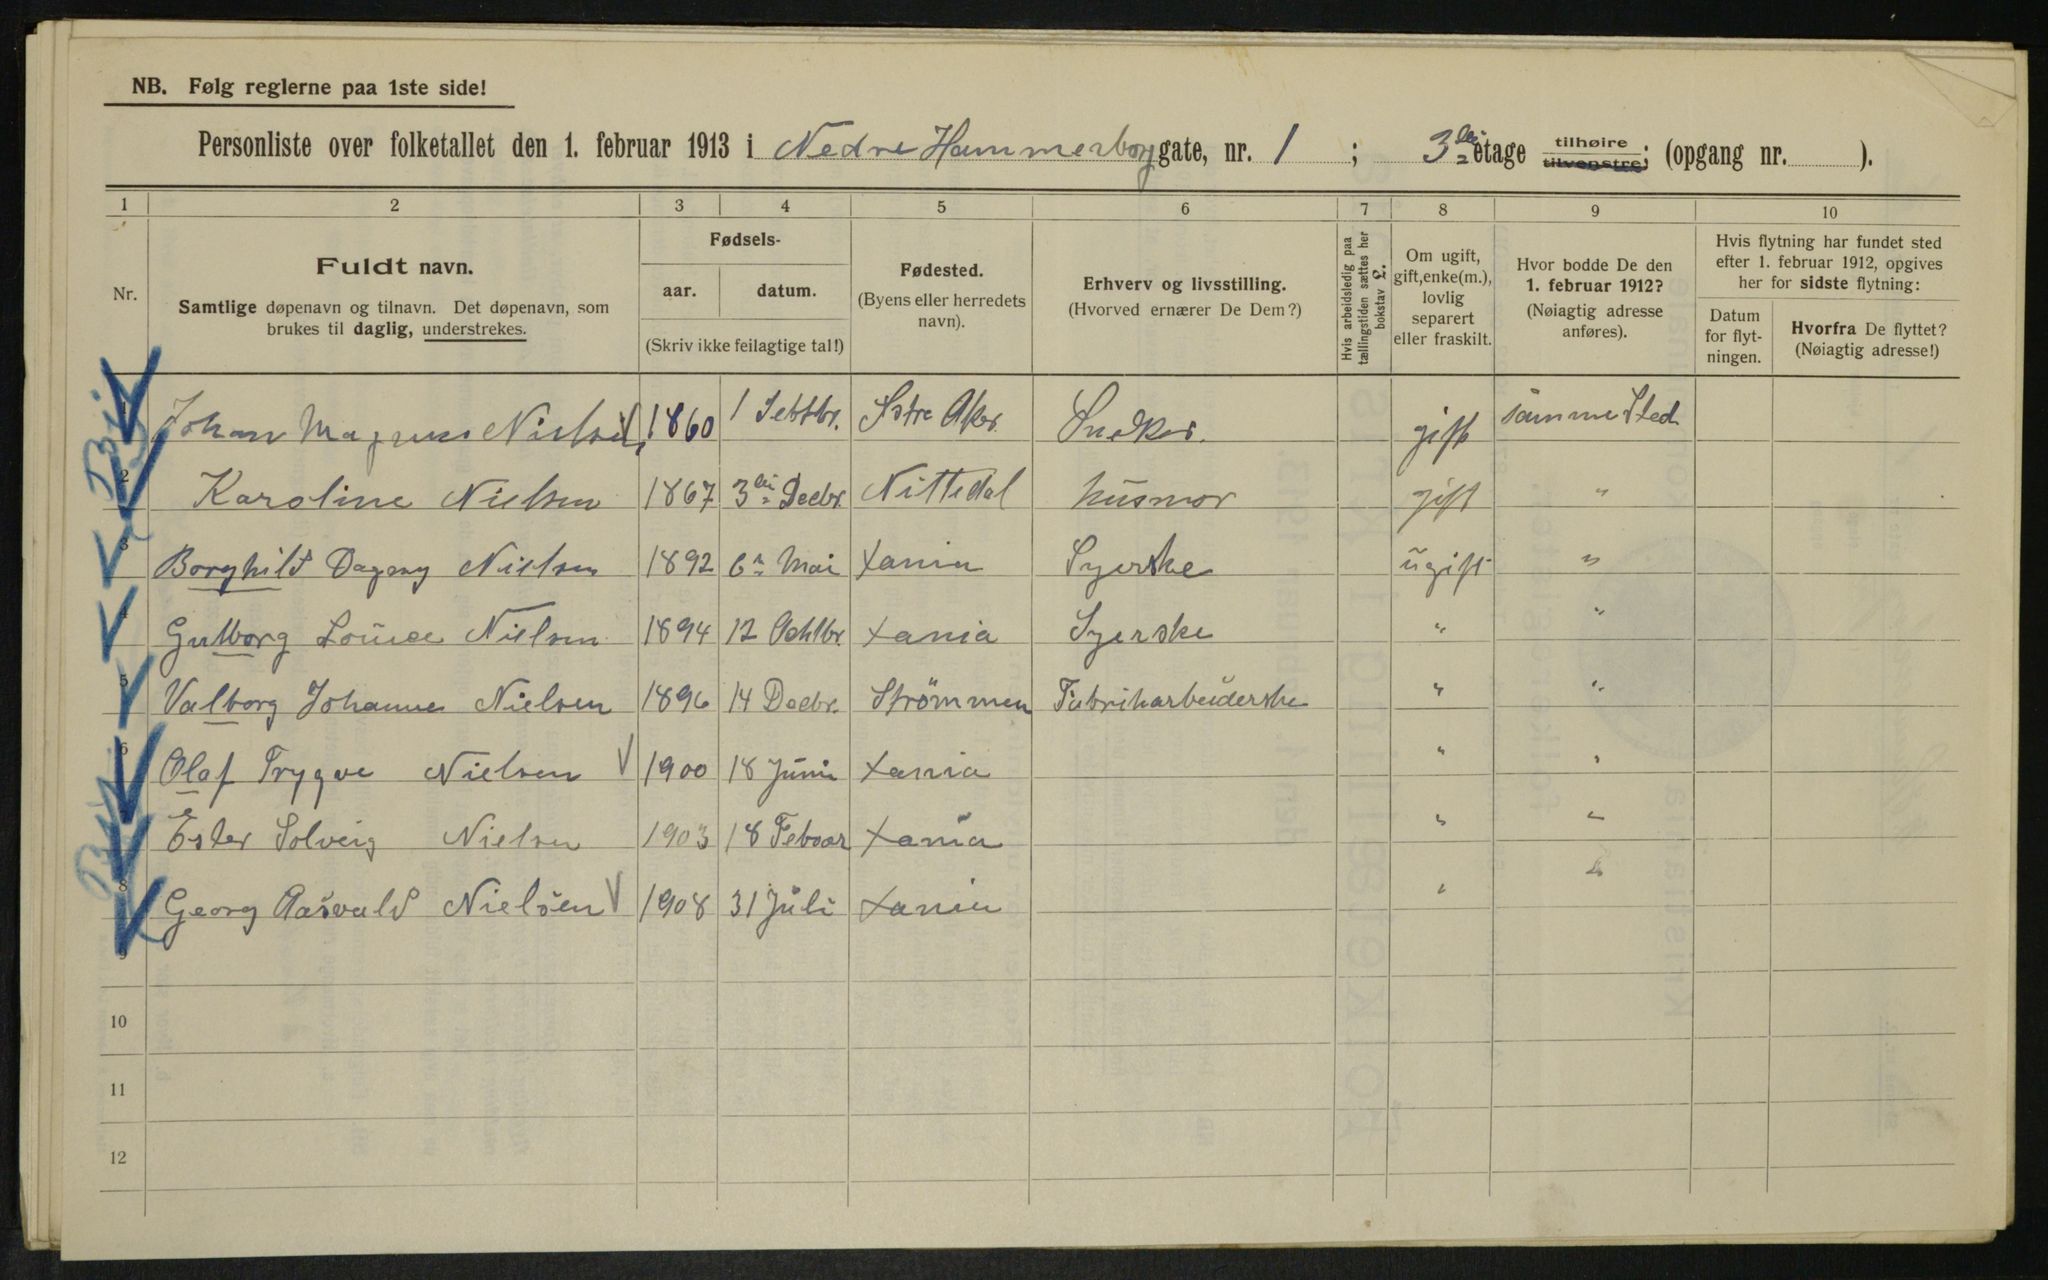 NB. Følg reglerne paa 1ste side!
Personliste over folketallet den 1. februar 1913 i Nedre Hammerborg gate, nr. 1 ; 3die etage tilhøire tilvenstre; (opgang nr. ).
1 2 3 4 5 6 7 8 9 10
Nr.
Fuldt navn.
Samtlige døpenavn og tilnavn. Det døpenavn, som
brukes til daglig, understrekes.
Fødsels-
aar. datum.
(Skriv ikke feilagtige tal!)
Fødested.
(Byens eller herredets
navn).
Erhverv og livsstilling.
(Hvorved ernærer De Dem?)
Hvis arbeidsledig paa
tællingstiden sættes her
bokstav l.
Om ugift,
gift, enke(m.),
lovlig
separert
eller fraskilt.
Hvor bodde De den
1. februar 1912?
(Nøiagtig adresse
anføres).
Hvis flytning har fundet sted
efter 1. februar 1912, opgives
her for sidste flytning:
Datum
for flyt-
ningen.
Hvorfra De flyttet?
(Nøiagtig adresse!)
1 Johan Magnus Nielsen 1860 1 Septbr. Østre Aker Snekker gift samme Sted
2 Karoline Nielsen 1867 3die Decbr. Nittedal husmor gift "
3 Borghild Dagny Nielsen 1892 6 Mai Xania Syerske ugift "
4 Gulborg Louise Nielsen 1894 12 Oktbr. Xania Syerske " "
5 Valborg Johanne Nielsen 1896 14 Decbr. Strömmen Fabrikarbeiderske " "
6 Olaf Trygve Nielsen 1900 18 Juni Xania " "
7 Ester Solveig Nielsen 1903 18 Feboar Xania " "
8 Georg Aasvald Nielsen 1908 31 Juli Xania " "
9
10
11
12